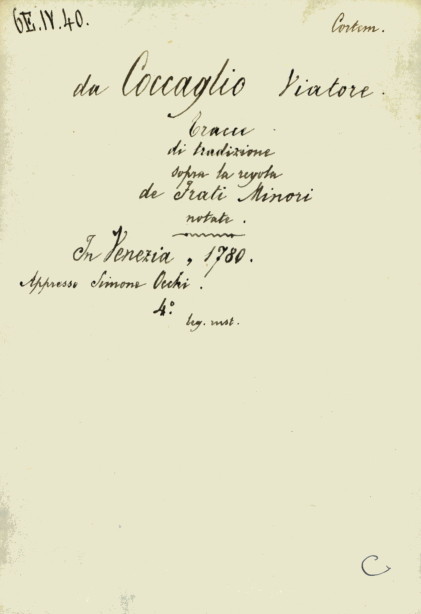 6E.IV.40.
Cortem.
da Coccaglio Viatore.
Tracce
di tradizione
sopra la regola
de Frati Minori
notate.
In Venezia, 1780.
Appresso Simone Occhi.
4.°
leg. rust.
C